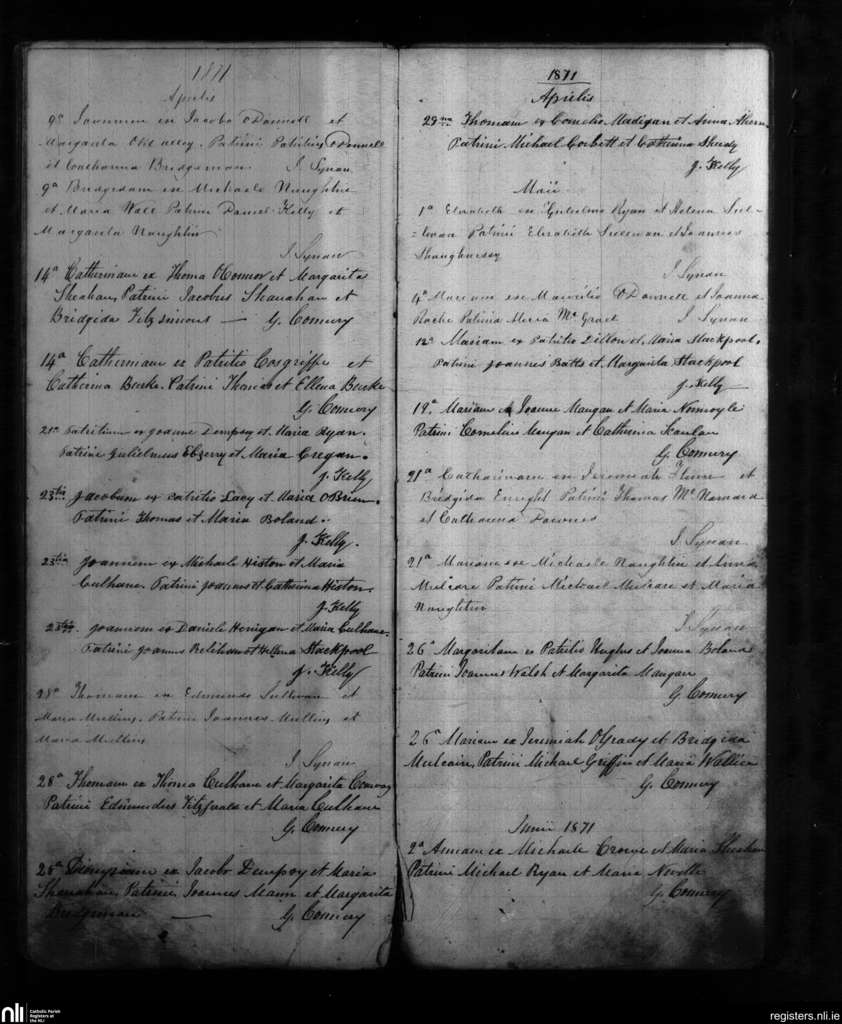 1871
Aprilis
9a Joannem ex Jacobo O'Donnell et
Margarita Patrini Patritius O'Donnell
et Catharina Bridgeman. J. Synan
9a Bridgidam ex Michaele Naughtin
et Maria Wall Patrini Daniel Kelly et
Margarita Naughtin
J. Synan
14a Catherinam ex Thoma O'Connor et Margarita
Sheahan, Patrini Jacobus Shanahan et
Bridgida Fitzsimons — G. Conway
14a Catherinam ex Patritio Cosgriffe et
Catherina Burke. Patrini Thomas et Ellena Burke
G. Conway
21a Patritium ex Joanne Dempsy et Maria Ryan.
Patrini Gulielmus et Maria Cregan.
J. Kelly
23tia Jacobum ex Patritio Lacy et Maria O'Brien.
Patrini Thomas et Maria Boland.
J. Kelly.
23tia Joannem ex Michaele Histon et Maria
Culhane. Patrini Joannes et Catherina Histon.
J. Kelly
23tia. Joannem ex Daniele Henigan et Maria Culhane.
Patrini Joannes et Hellena Stackpool
J. Kelly
28a Thomam ex Edmundo Sullivan et
Maria Mullins. Patrini Joannes Mullins et
Maria Mullins
J. Synan
28a Thomam ex Thoma Culhane et Margarita Conway
Patrini Edmundus Fitzgerald et Maria Culhane
G. Conway
28a Dionysium ex Jacobo Dempsy et Maria
Shanahan, Patrini Joannes Mann et Margarita
Bridgeman — G. Conway
1871
Aprilis
29na Thomam ex Cornelio Madigan et Anna Ahern
Patrini Michael Corbett et Catherina Sheedy
J. Kelly
Maii
1a Elizabeth ex Gulielmo Ryan et Helena Sul-
=livan Patrini Elizabeth Sullivan et Joannes
Shaughnessy
J. Synan
4a Mariam ex Mauritio O'Donnell et Joanna
Roche Patrina Maria McGrael J. Synan
12a Mariam ex Patritio Dillon et Maria Stackpool.
Patrini Joannes Batts et Margarita Stackpool
J. Kelly
19a Mariam ex Joanne Mangan et Maria
Patrini Cornelius Mangan et Catherina Scanlan
G. Conway
21a Catharinam ex Jeremiah et
Bridgida Enright Patrini Thomas McNamara
et Catharina Downes
J. Synan
21a Mariam ex Michaele Naughtin et Anna
Mulcare Patrini Michael Mulcare et Maria
Naughtin
J. Synan
26a Margaritam ex Patritio Hughes et Joanna Boland
Patrini Joannes Walsh et Margarita Mangan
G. Conway
26a Mariam ex Jeremiah O'Grady et Bridgida
Mulcair, Patrini Michael Griffin et Maria
G. Conway
Junii 1871
2a Annam ex Michaele Crowe et Maria Sheahan
Patrini Michael Ryan et Maria Neville
G. Conway
nli Catholic Parish
Registers at
the NLI
registers.nli.ie